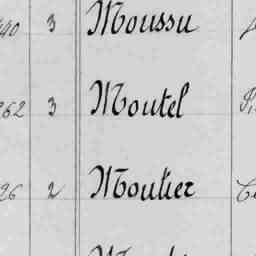 440 3 Moussu
262 3 Moutel
26 2 Moutier